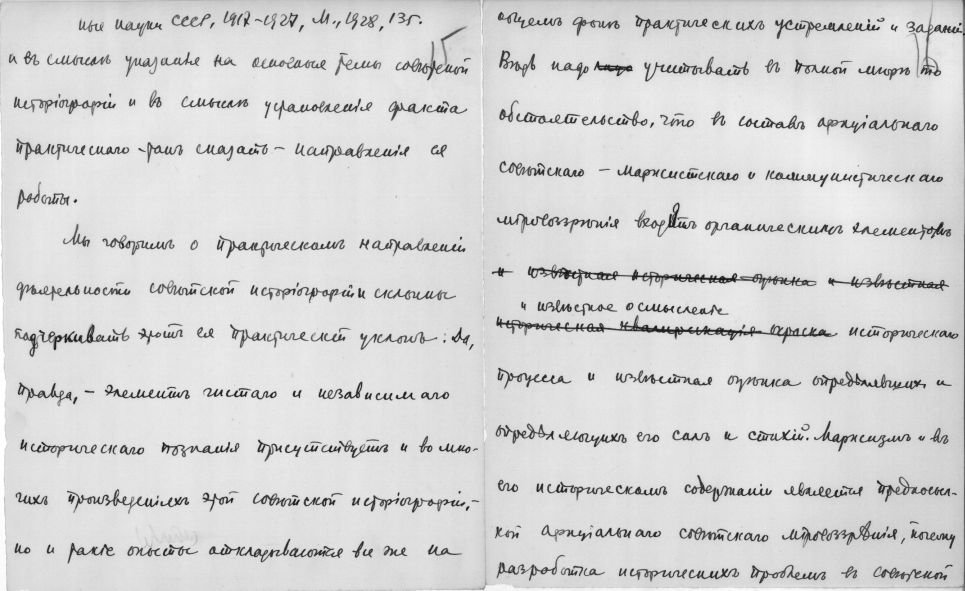 ныя науки СССР, 1917-1927, М., 1928, 13 г.
и въ смыслѣ указанія на основныя темы совѣтской
исторіографіи и въ смыслѣ установленія факта
практическаго - такъ сказать - направленія ея
работы.
Мы говоримъ о практическомъ направленіи
дѣятельности совѣтской исторіографіи и склонны
подчеркивать этотъ ея практическій уклонъ: Да,
правда, - элементъ чистаго и независимаго
историческаго познанія присутствуетъ и во мно-
гихъ произведеніяхъ этой совѣтской исторіографіи, -
но и такіе опыты откладываются все же на
общемъ фонѣ практическихъ устремленій и заданій.
Вѣдь надо учитывать въ полной мѣрѣ то
обстоятельство, что въ составъ офиціальнаго
совѣтскаго - марксистскаго и коммунистическаго
міровоззрѣнія входитъ органическимъ элементомъ
и извѣстная историческая оцѣнка и извѣстная
и извѣстное осмысленіе
историческая квалификація окраска историческаго
процесса и извѣстная оцѣнка опредѣлявшихъ и
опредѣляющихъ его силъ и стихій. Марксизмъ и въ
его историческомъ содержаніи является предпосыл-
кой офиціальнаго совѣтскаго міровоззрѣнія, почему
разработка историческихъ проблемъ въ совѣтской